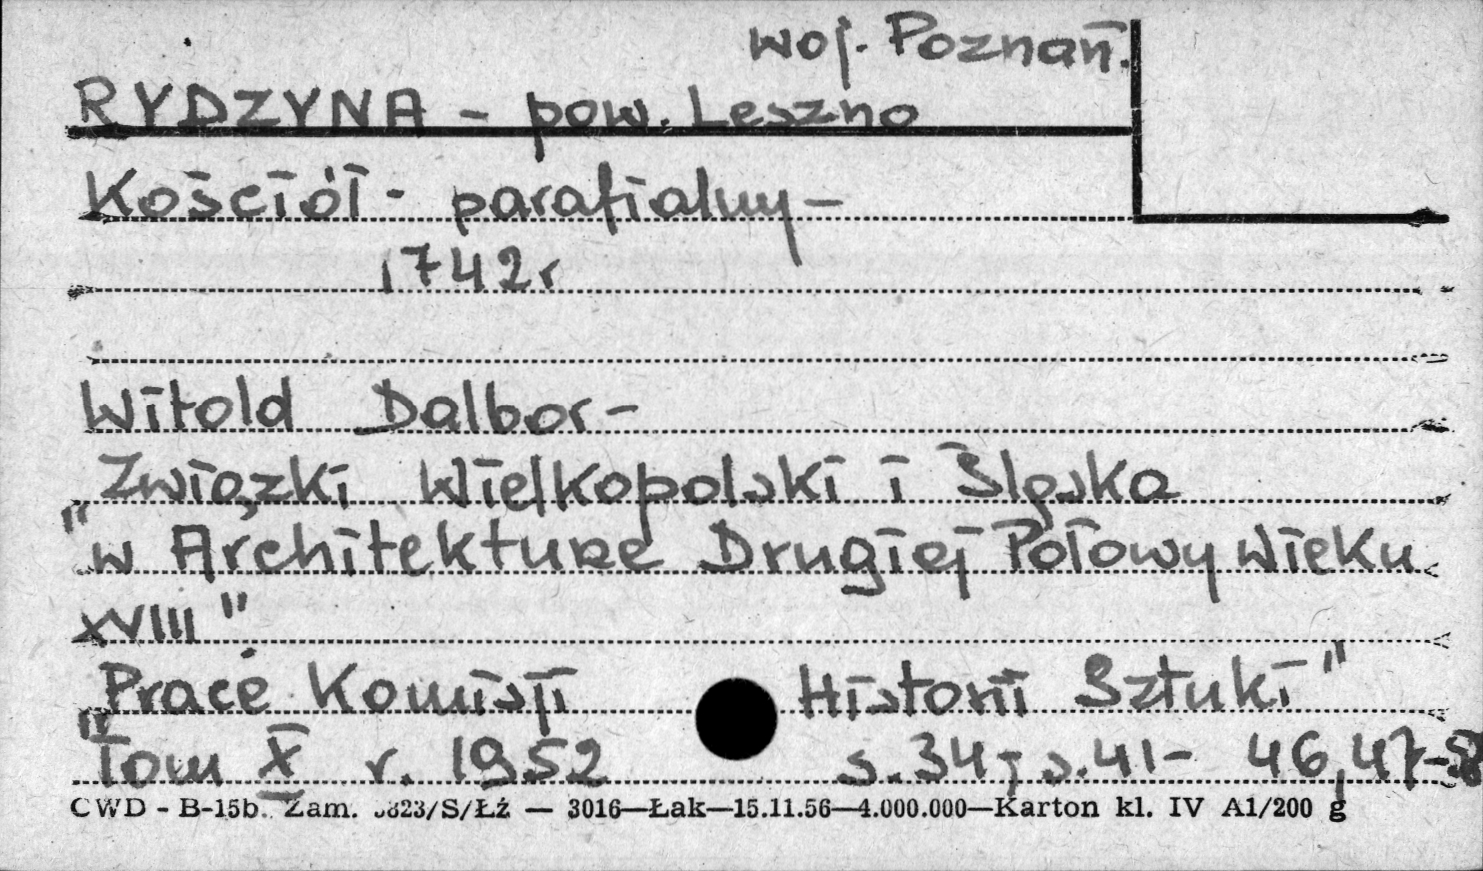 woj. Poznań.
RYDZYNA - pow. Leszno
Kościół - parafialny -
1742r
Witold Dalbor -
Związki Wielkopolski i Śląska
"w Architekturze Drugiej Połowy Wieku
XVIII"
Prace Komisji Historii Sztuki"
"Tom X r. 1952 s. 34; s. 41- 46, 47-58
CWD - B-15b. Zam. 3823/S/Łż — 3016—Łak—15.11.56—4.000.000—Karton kl. IV A1/200 g